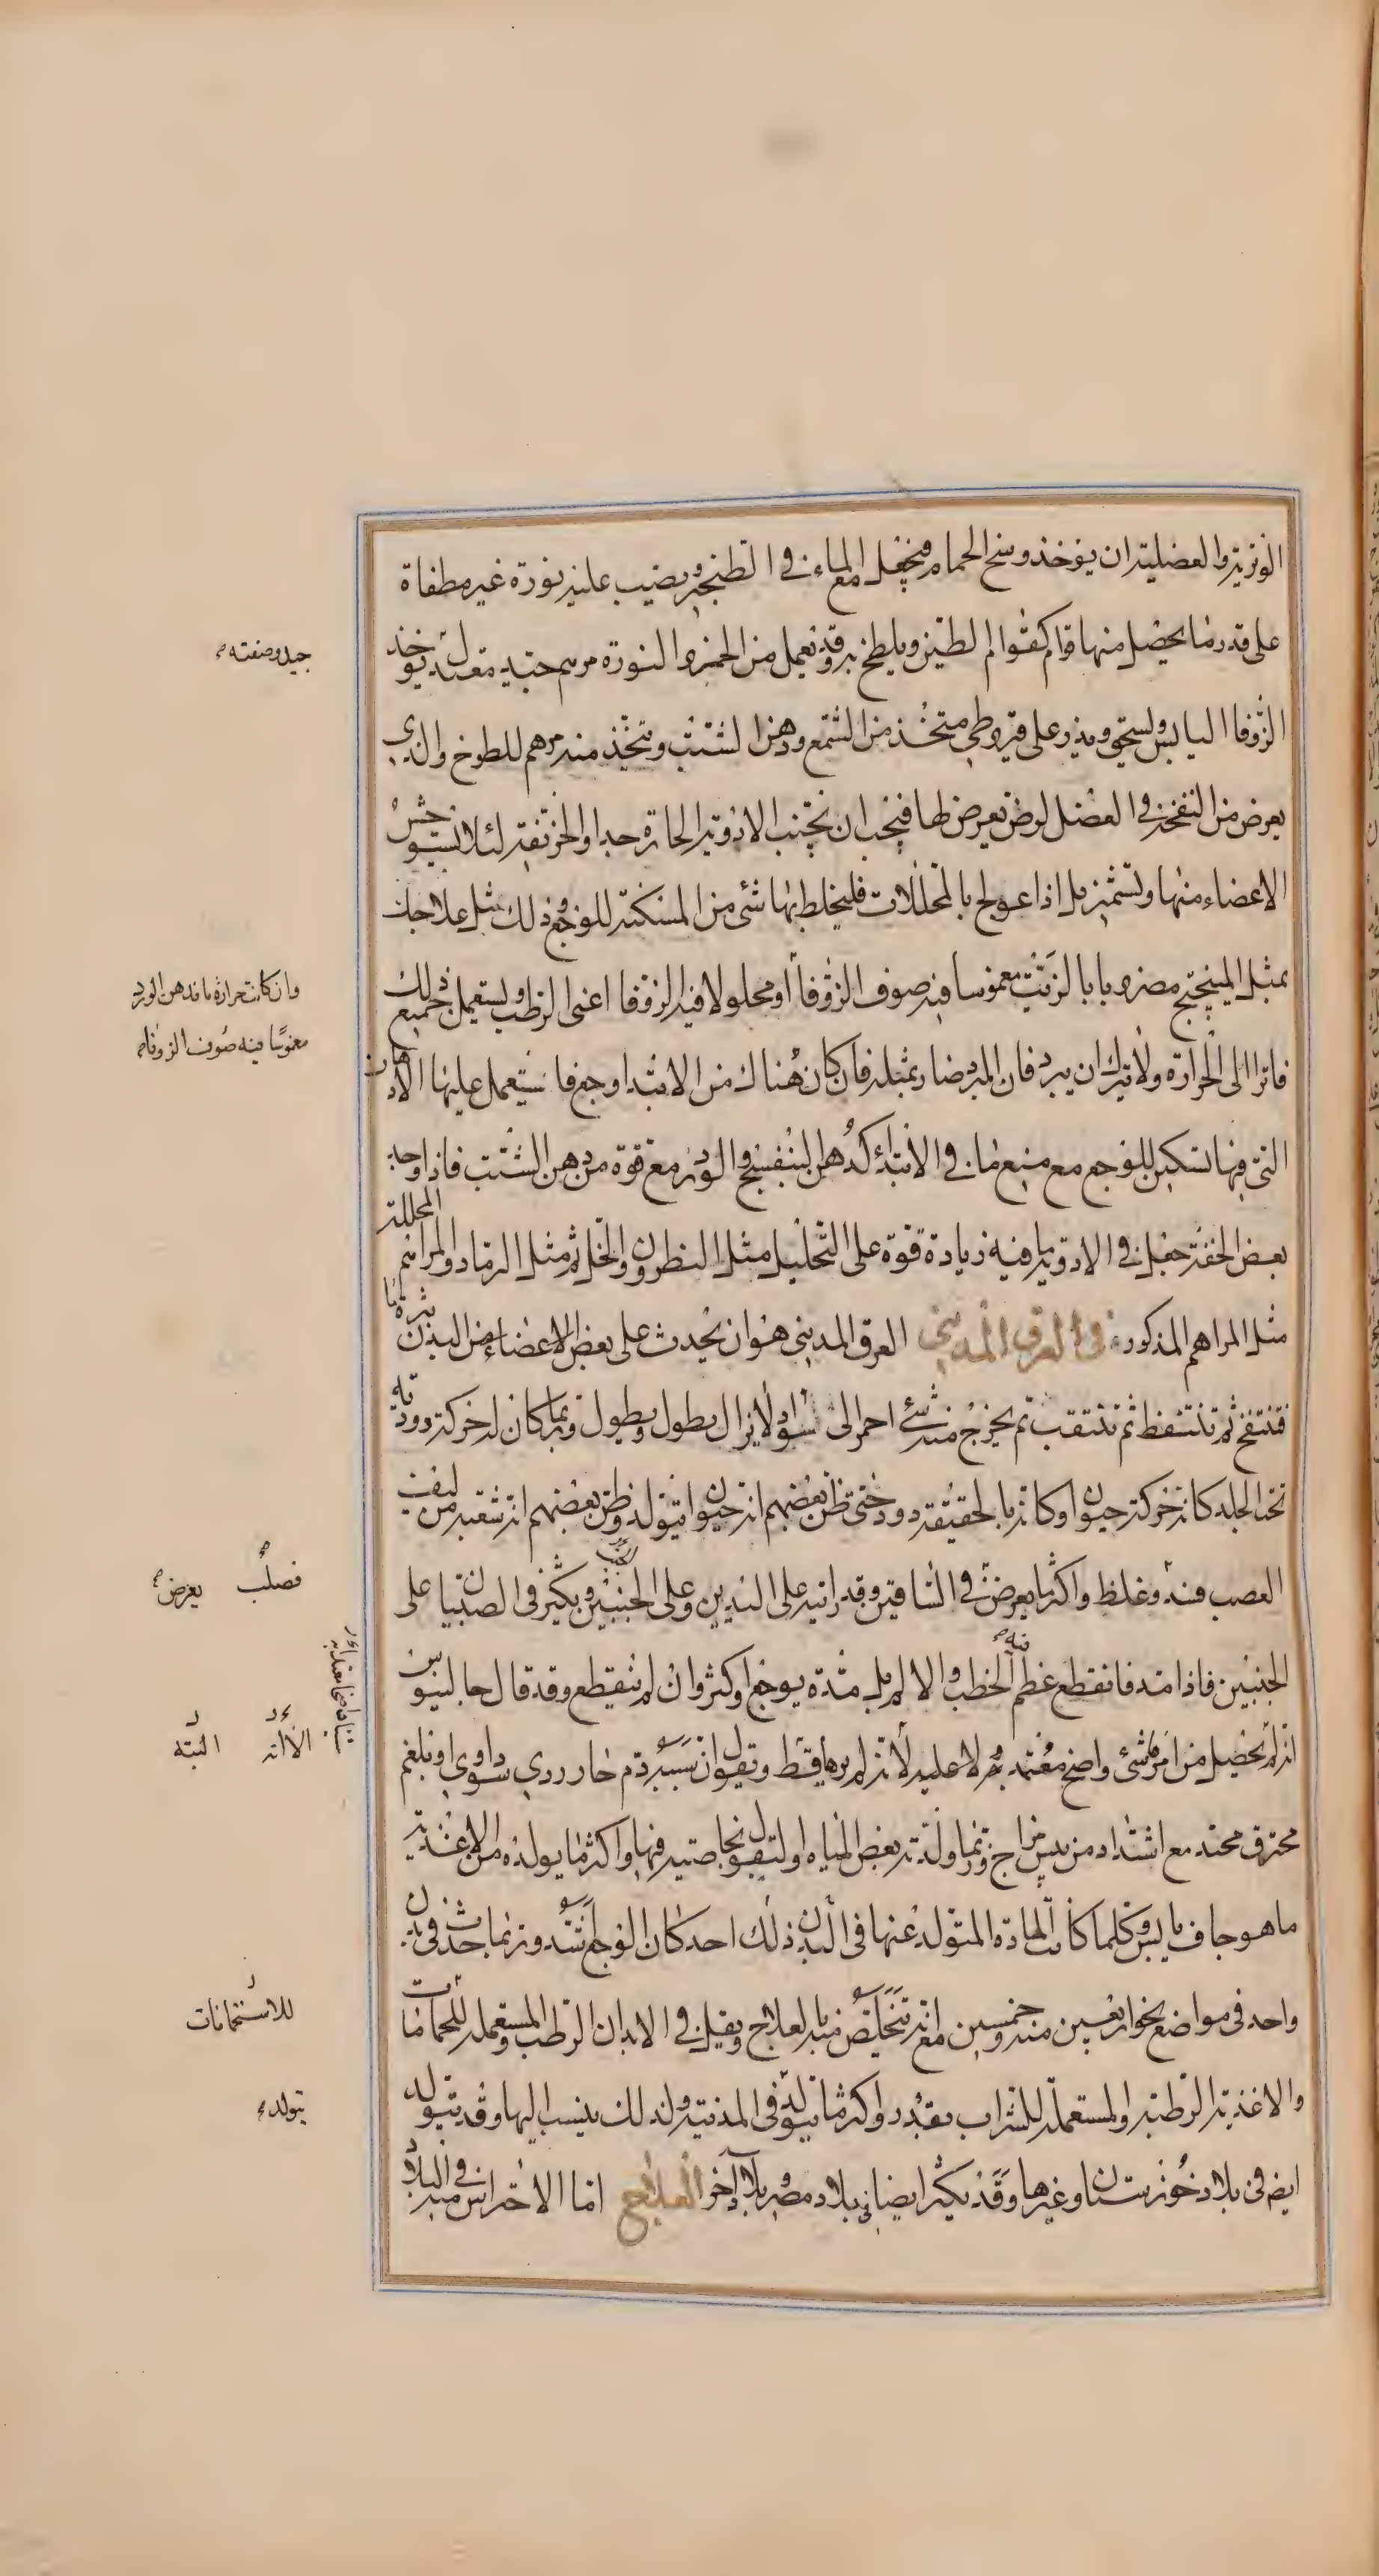 الوترية والعضلية ان يوخذ وسخ الحمام فيجعل مع الماء في الطنجير ويصب عليه نورة غير مطفاة
على قدر ما يحصل منها قوام كقوام الطين ويلطخ به وقد يعمل من الخمر والنورة مرهم جيد معتدل يوخذ
جيد وصفته
الزوفا اليابس ويسحق ويذر على قيروطي متخذ من الشمع ودهن الشبث ويتخذ منه مرهم للطوخ والذي
يعرض من النفخة في العضل لرض يعرض لها فيجب ان تجتنب الادوية الحارة جدا والحريفة لئلا يستوحش
الاعضاء منها وتشمئز بل اذا عولج بالمحللات فليخلط بها شئ من المسكنة للوجع وذلك مثل علاجك
بمثل الميبختج مضروبا بالزيت مغموسا فيه صوف الزوفا او محلولا فيه الزوفا اعني الرطب ويستعمل جميع ذلك
وان كانت حرارة ما فدهن الورد
مغموسا فيه صوف الزوفا
فاترا الى الحرارة ولا يترك ان يبرد فان البرد ضار بمثله فان كان هناك من الابتدا وجع فاستعمل عليها الادهان
التي فيها تسكين للوجع مع منع ما في الابتداء كدهن البنفسج والورد مع قوة من دهن الشبث فاذا وجد
بعض الخفة جعل في الادوية ما فيه زيادة قوة على التحليل مثل النطرون والخل ثم مثل الرماد والمراهم المحللة
مثل المراهم المذكورة في العرق المديني العرق المديني هو ان يحدث على بعض الاعضاء من البدن بثرة ما
فتنتفخ ثم تتنفط ثم تتثقب ثم يخرج منه شئ احمر الى السواد ولا يزال يطول ويطول وربما كان له حركة دودية
تحت الجلد كانه حركة حيوان او كانه بالحقيقة دود حتى ظن بعضهم انه حيوان يتولد وظن بعضهم انه شعبة من ليف
العصب فسد وغلظ واكثر ما يعرض في الساقين وقد رايته على اليدين وعلى الجنبين ويكثر في الصبيان على
فصلب يعرض
الجنبين فاذا مد فانقطع عظم فيه الخطب والالم بل مده يوجع اكثر وان لم ينقطع وقد قال جالينوس
انه لم يحصل من امره شئ واضح معتمد عليه لانه لم يرها قط ويقول ان سببه دم حار ردي سوداوي او بلغم
الا انه البتة
محترق محتد مع اشتداد من يبس مزاج وربما ولدته بعض المياه والبقول بخاصية فيها واكثر ما يولده من الاغذية
ما هو جاف يابس وكلما كانت المادة المتولد عنها في البدن ذلك احد كان الوجع اشد وربما حدث في بدن
واحد في مواضع نحو اربعين منه وخمسين مع انه يتخلص منه بالعلاج ويقل في الابدان الرطبة والمستعملة للحمامات
للاستحمامات
والاغذية الرطبة والمستعملة للشراب بقدر واكثر ما يتولد في المدينة ولذلك ينسب اليها وقد يتولد
يتولد
ايضا في بلاد خوزستان وغيرها وقد يكثر ايضا في بلاد مصر وبلاد آخر العلاج اما الاحتراس منه في البلاد